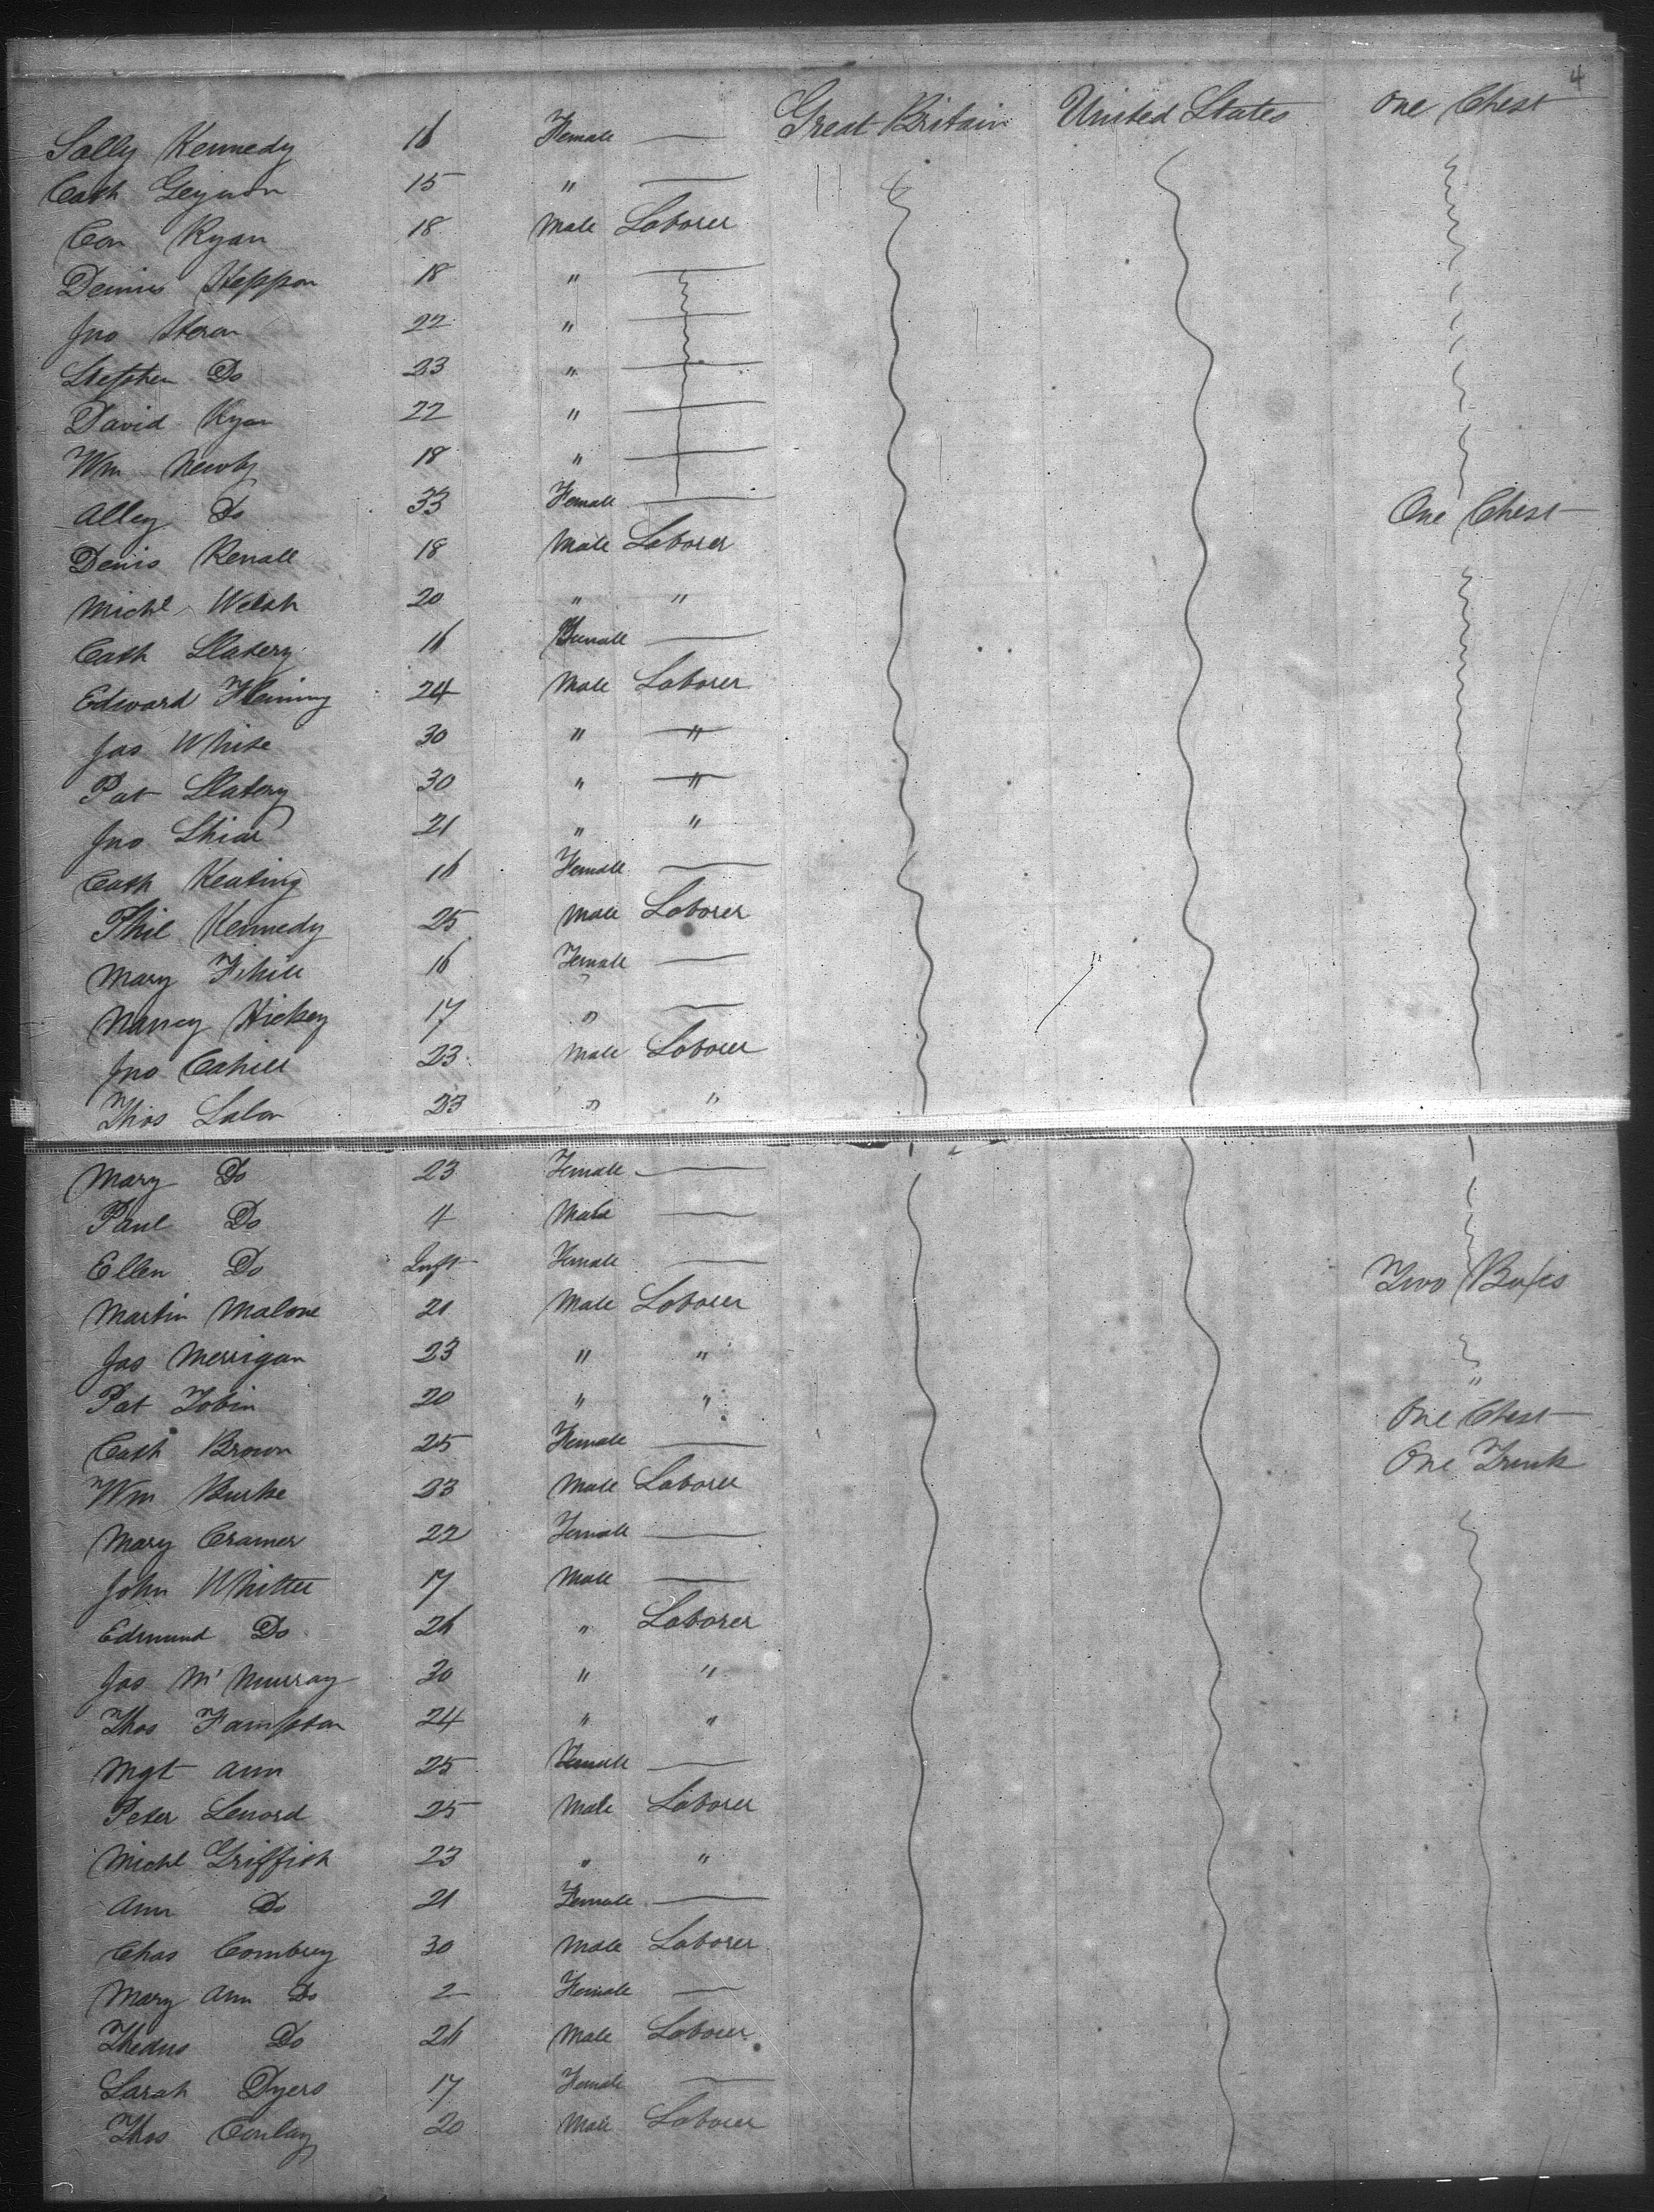 4
Sally Kennedy 16 Female — Great Britain United States One Chest
Cath 15 " —
Con Ryan 18 Male Laborer
Dennis Heppon 18 " —
Jno Heran 22 " —
Stephen Do 23 " —
David Ryan 22 " —
Wm Newby 18 " —
Alley Do 33 Female — One Chest
Denis 18 Male Laborer
Michl Welsh 20 " "
Cath Slatery 16 Female —
Edward Fleming 24 Male Laborer
Jas White 30 " "
Pat Slatery 30 " "
Jno Shiar 21 " "
Cath Keating 16 Female —
Phil Kennedy 25 Male Laborer
Mary 16 Female —
Nancy Hickey 17 " —
Jno Cahill 23 Male Laborer
Thos Lalor 23 " "
Mary Do 23 Female —
Paul Do 4 Male —
Ellen Do Inft Female — Two Boxes
Martin Malone 21 Male Laborer
Jas Merrigan 23 " "
Pat Tobin 20 " " " One Chest
Cath Brown 25 Female — One Trunk
Wm Burke 23 Male Laborer
Mary Cramer 22 Female —
John Whittee 17 Male —
Edmund Do 26 " Laborer
Jas Mc Murray 30 " "
Thos 24 " "
Mgt Ann 25 Female —
Peter Lenord 25 Male Laborer
Michl Griffith 23 " "
Ann Do 21 Female —
Chas 30 Male Laborer
Mary Ann Do 2 Female —
Do 26 Male Laborer
Sarah Dyers 17 Female —
Thos Conlay 20 Male Laborer